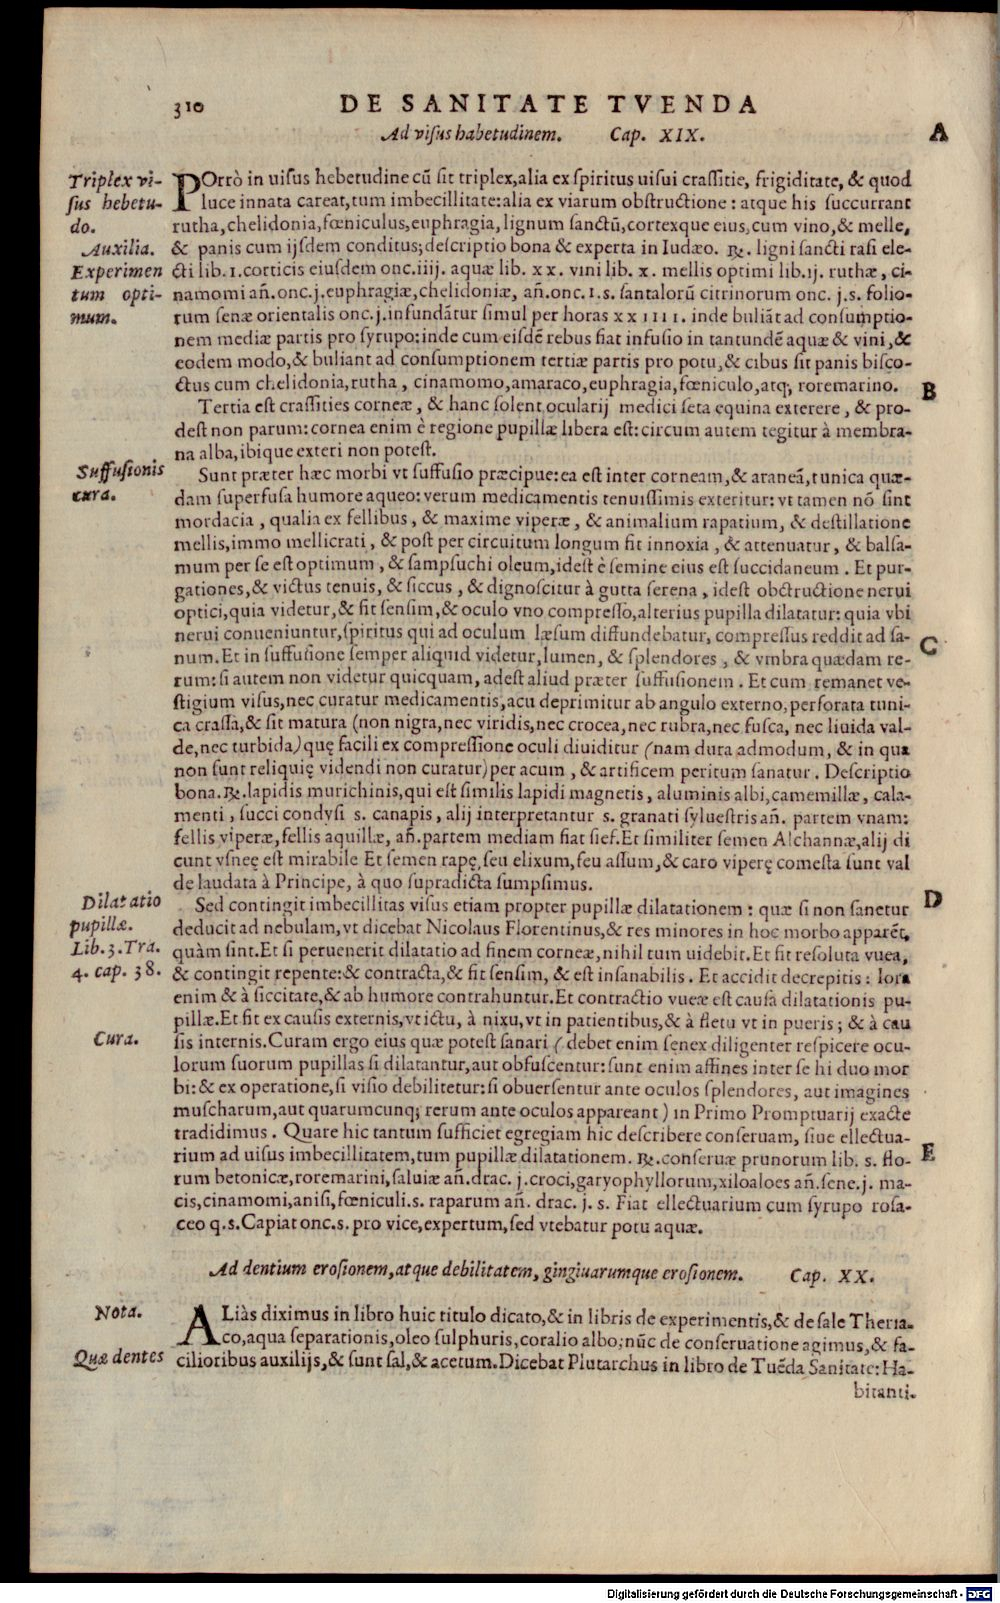 310 DE SANITATE TVENDA
Ad visus habetudinem. Cap. XIX.
A
Triplex vi-
sus hebetu-
do.
Auxilia.
Experimen
tum opti-
mum.
POrrò in uisus hebetudine cū sit triplex,alia ex spiritus uisui crassitie, frigiditate, & quod
luce innata careat,tum imbecillitate:alia ex viarum obstructione : atque his succurrant
rutha,chelidonia,fœniculus,euphragia,lignum sanctū,cortexque eius,cum vino,& melle,
& panis cum ijsdem conditus;descriptio bona & experta in Iudæo. ℞. ligni sancti rasi ele-
cti lib.1.corticis eiusdem onc.iiij. aquæ lib. xx. vini lib. x. mellis optimi lib.ij. ruthæ, ci-
namomi añ.onc.j.euphragiæ,chelidoniæ, añ.onc.1.s. santalorū citrinorum onc. j.s. folio-
rum senæ orientalis onc.j.infundātur simul per horas xxiiii. inde buliāt ad consumptio-
nem mediæ partis pro syrupo:inde cum eisdē rebus fiat infusio in tantundē aquæ & vini,&
eodem modo,& buliant ad consumptionem tertiæ partis pro potu,& cibus sit panis bisco-
ctus cum chelidonia,rutha, cinamomo,amaraco,euphragia,fœniculo,atq; roremarino.
B
Tertia est crassities corneæ, & hanc solent ocularij medici seta equina exterere, & pro-
dest non parum:cornea enim è regione pupillæ libera est:circum autem tegitur à membra-
na alba,ibique exteri non potest.
Suffusionis
cura.
Sunt præter hæc morbi vt suffusio præcipue:ea est inter corneam,& araneā,tunica quæ-
dam superfusa humore aqueo:verum medicamentis tenuissimis exteritur:vt tamen nō sint
mordacia, qualia ex fellibus, & maxime viperæ, & animalium rapatium, & destillatione
mellis,immo mellicrati, & post per circuitum longum fit innoxia, & attenuatur, & balsa-
mum per se est optimum, & sampsuchi oleum,idest è semine eius est succidaneum. Et pur-
gationes,& victus tenuis, & siccus, & dignoscitur à gutta serena, idest obctructione nerui
optici,quia videtur,& fit sensim,& oculo vno compresso,alterius pupilla dilatatur: quia vbi
nerui conueniuntur,spiritus qui ad oculum læsum diffundebatur, compressus reddit ad sa-
C
num.Et in suffusione semper aliquid videtur,lumen, & splendores, & vmbra quædam re-
rum:si autem non videtur quicquam, adest aliud præter suffusionem. Et cum remanet ve-
stigium visus,nec curatur medicamentis,acu deprimitur ab angulo externo,perforata tuni-
ca crassa,& sit matura (non nigra,nec viridis,nec crocea,nec rubra,nec fusca, nec liuida val-
de,nec turbida) quę facili ex compressione oculi diuiditur (nam dura admodum, & in qua
non sunt reliquię videndi non curatur) per acum, & artificem peritum sanatur. Descriptio
bona.℞.lapidis murichinis,qui est similis lapidi magnetis, aluminis albi,camemillæ, cala-
menti, succi condysi s. canapis, alij interpretantur s. granati syluestris añ. partem vnam:
fellis viperæ,fellis aquillæ, añ.partem mediam fiat sief.Et similiter semen Alchannæ,alij di
cunt vsneę est mirabile Et semen rapę,seu elixum,seu assum,& caro viperę comesta sunt val
de laudata à Principe, à quo supradicta sumpsimus.
Dilatatio
pupillæ.
Lib.3.Tra.
4. cap. 38.
D
Sed contingit imbecillitas visus etiam propter pupillæ dilatationem : quæ si non sanetur
deducit ad nebulam,vt dicebat Nicolaus Florentinus,& res minores in hoc morbo apparēt,
quàm sint.Et si peruenerit dilatatio ad finem corneæ,nihil tum uidebit.Et fit resoluta vuea,
& contingit repente:& contracta,& fit sensim, & est insanabilis. Et accidit decrepitis : lora
enim & à siccitate,& ab humore contrahuntur.Et contractio vueæ est causa dilatationis pu-
pillæ.Et fit ex causis externis,vt ictu, à nixu,vt in patientibus,& à fletu vt in pueris; & à cau
Cura.
sis internis.Curam ergo eius quæ potest sanari (debet enim senex diligenter respicere ocu-
lorum suorum pupillas si dilatantur,aut obfuscentur:sunt enim affines inter se hi duo mor
bi:& ex operatione,si visio debilitetur:si obuersentur ante oculos splendores, aut imagines
muscharum,aut quarumcunq; rerum ante oculos appareant) in Primo Promptuarij exacte
tradidimus. Quare hic tantum sufficiet egregiam hic describere conseruam, siue ellectua-
E
rium ad uisus imbecillitatem,tum pupillæ dilatationem. ℞.conseruæ prunorum lib. s. flo-
rum betonicæ,roremarini,saluiæ añ.drac. j.croci,garyophyllorum,xiloaloes añ.sene.j. ma-
cis,cinamomi,anisi,fœniculi.s. raparum añ. drac. j. s. Fiat ellectuarium cum syrupo rosa-
ceo q.s.Capiat onc.s. pro vice,expertum,sed vtebatur potu aquæ.
Ad dentium erosionem,atque debilitatem, gingiuarumque erosionem. Cap. XX.
Nota.
Quæ dentes
ALiàs diximus in libro huic titulo dicato,& in libris de experimentis,& de sale Theria-
co,aqua separationis,oleo sulphuris,coralio albo;nūc de conseruatione agimus,& fa-
cilioribus auxilijs,& sunt sal,& acetum.Dicebat Plutarchus in libro de Tuēda Sanitate: Ha-
bitanti.
Digitalisierung gefördert durch die Deutsche Forschungsgemeinschaft - DFG